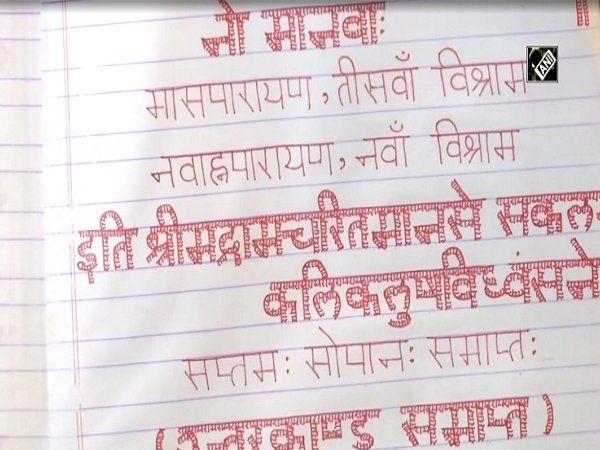 नो मानवाः
ANI
मासपारायण, तीसवाँ विश्राम
नवाह्नपारायण, नवाँ विश्राम
इति श्रीमद्रामचरितमानसे सकल
कलिकलुषविध्वंसने
सप्तमः सोपानः समाप्तः
(उत्तरकाण्ड समाप्त)